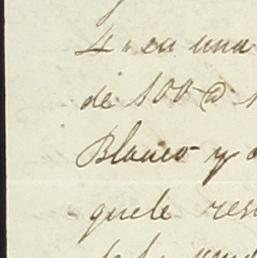 4. en una
de 100 @
Blanco y
quele res